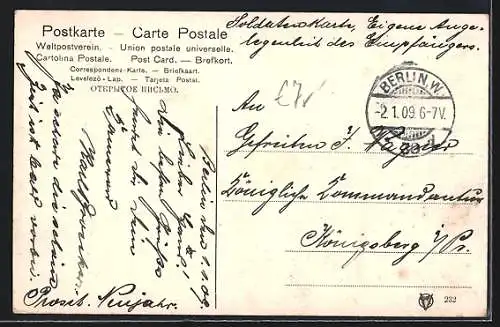 Postkarte – Carte Postale
Weltpostverein. – Union postale universelle.
Cartolina Postale. Post Card. – Brefkort.
Correspondenz-Karte. – Briefkaart.
Levelező-Lap. – Tarjeta Postal.
ОТКРЫТОЕ ПИСЬМО.
Soldatenkarte, Eigene Ange-
legenheit des Empfängers.
BERLIN W.
-2.1.09.6-7V.
An
Gefreiten
Königliche Kommandantur
Königsberg i/Pr.
Berlin den 1.1.09.
Lieber
Die besten Grüße
sendet dir dein
Kamerad
Karl
Zeit ist bald vorbei.
Prosit Neujahr.
232